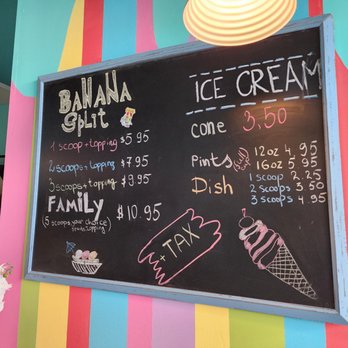 BANANA
Split
1 scoop + topping $5.95
2 scoops + topping $7.95
3 scoops + topping $9.95
FAMILY
(5 scoops your choice $10.95
topping)
ICE CREAM
Cone 3,50
Pints 12oz 4.95
16oz 5.95
Dish 1 scoop 2.25
2 scoops 3.50
3 scoops 4.95
+ TAX